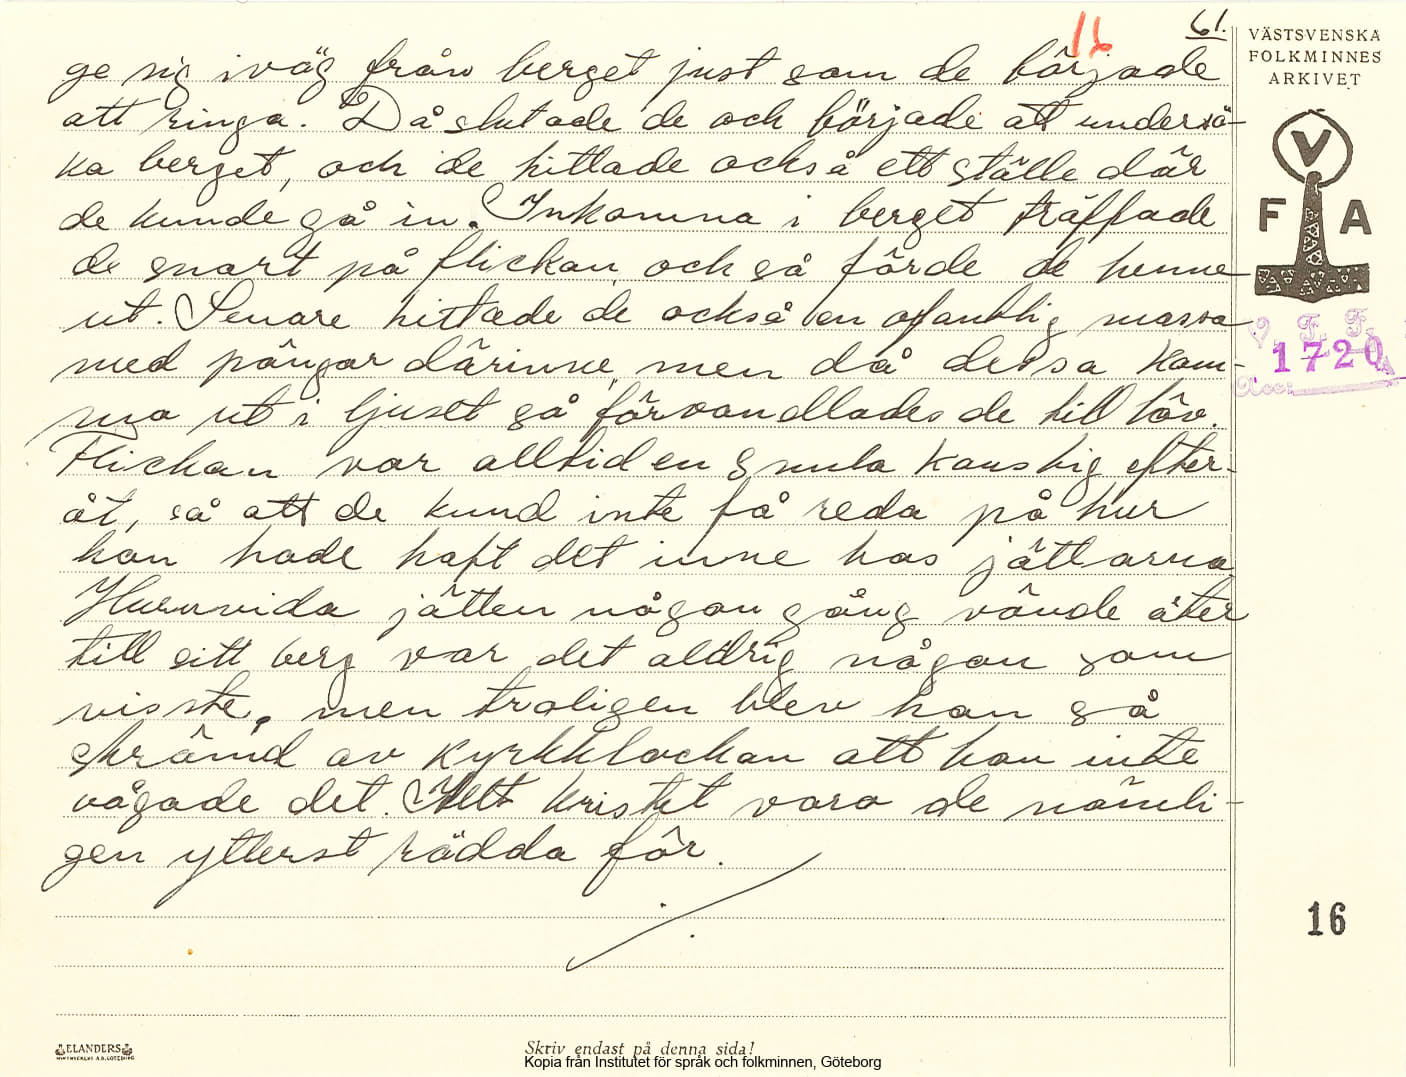 16
61.
VÄSTSVENSKA
FOLKMINNES
ARKIVET
V
F A
V. F. F.
1720
Acc:
ge sig iväg från berget just som de började
att ringa. Då slutade de och började att undersö-
ka berget, och de hittade också ett ställe där
de kunde gå in. Inkomna i berget träffade
de snart på flickan, och så förde de henne
ut. Senare hittade de också en ofantlig massa
med pängar därinne, men då dessa kom-
mo ut i ljuset så förvandlades de till löv.
Flickan var alltid en smula konstig efter-
åt, så att de kund inte få reda på hur
hon hade haft det inne hos jättarna
Huruvida jätten någon gång vände åter
till sitt berg var det aldrig någon som
visste, men troligen blev han så
skrämd av kyrkklockan att han inte
vågade det. Allt kristet voro de nämli-
gen ytterst rädda för.
16
ELANDERS
Skriv endast på denna sida!
Kopia från Institutet för språk och folkminnen, Göteborg